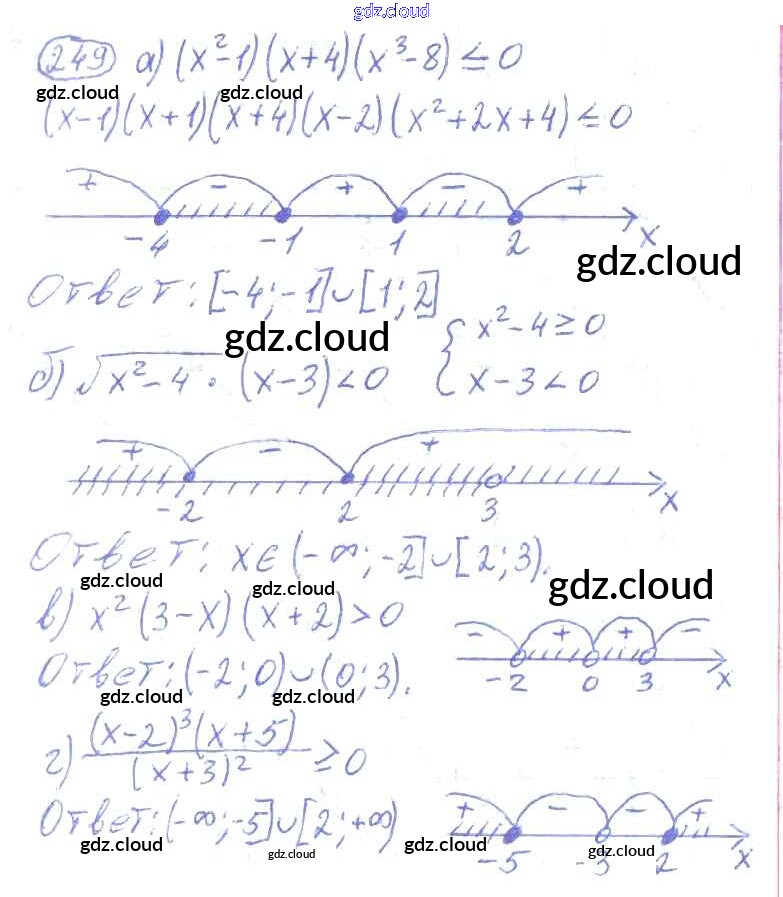 gdz.cloud
249 а) (x²-1)(x+4)(x³-8) ≤ 0
gdz.cloud gdz.cloud
(x-1)(x+1)(x+4)(x-2)(x²+2x+4) ≤ 0
+ - + - +
-4 -1 1 2 x
gdz.cloud
Ответ: [-4;-1]∪[1;2]
gdz.cloud
{ x²-4≥0
б) √x²-4 · (x-3)<0 x-3<0
+ - +
-2 2 3 x
Ответ: x∈(-∞;-2]∪[2;3).
gdz.cloud gdz.cloud gdz.cloud
в) x²(3-x)(x+2)>0
- + + -
-2 0 3 x
Ответ: (-2;0)∪(0;3).
gdz.cloud gdz.cloud
г) (x-2)³(x+5)
(x+3)² ≥0
Ответ: (-∞;-5]∪[2;+∞)
+ - - +
-5 -3 2 x
gdz.cloud gdz.cloud gdz.cloud gdz.cloud